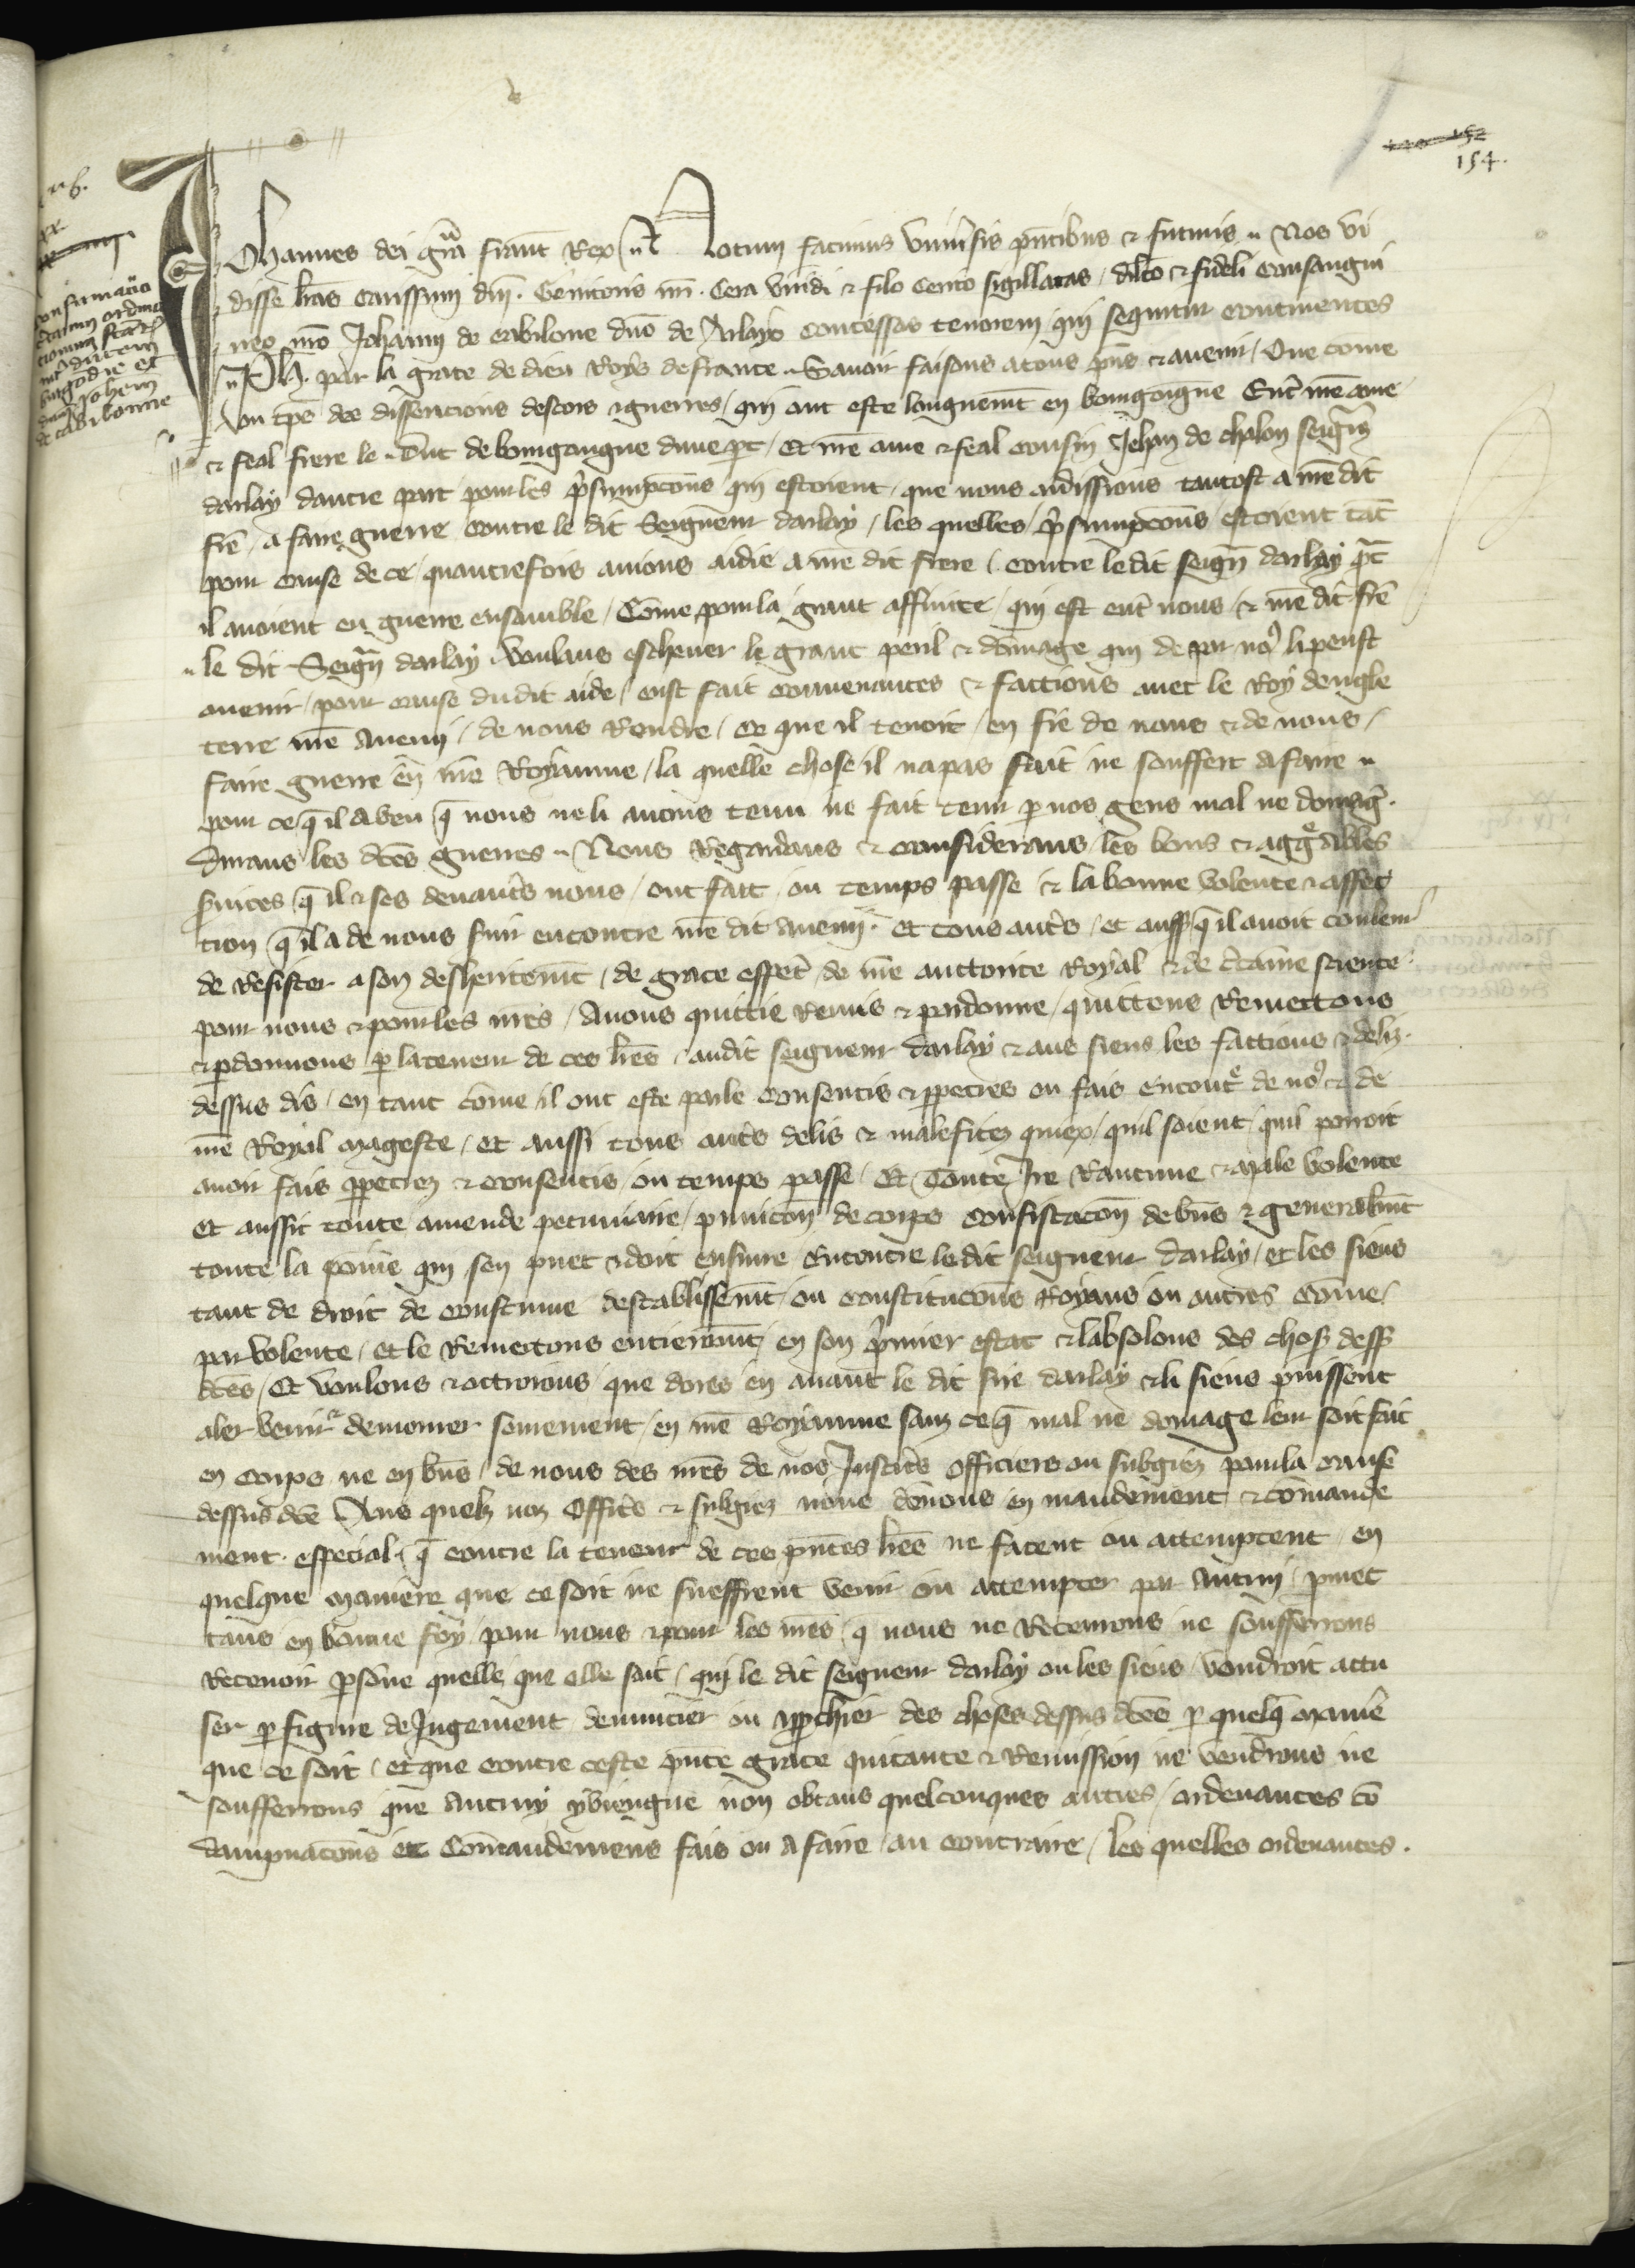 152
154.
Johannes dei gra franc Rex Notum facimus universis pntibus & futuris Nos vi
disse lras carissimi dni Genitoris nri Cera viridi & filo serico sigillatas dilco & fideli consangui
neo nro Johanni de cabilone dno de Arlayo concessas tenorem qui sequitur continentes
Ph. par la grace de dieu Roys de france Savoir faisons a tous pns & avenir Que come
ou tps des dissencions descors & guerres qui ont este longuemt en bourgoigne Entre nre ame
& feal frere le Duc de bourgongne dune pt Et nre ame & feal cousin Jehan de chalon seignr
darlay dautre part pour les presumpcons qui estoient que nous aidissions tantost a nre dit
fre a faire guerre contre le dit Seigneur darlay les quelles presumpcons estoient tat
pour cause de ce quautrefois avions aidie a nre dit frere contre le dit seignr darlay
il avoient eu guerre ensamble Come pour la grant affinite qui est ent nous & nre dit fre
le dit Seignr darlay voulans eschever le grant peril & domage qui de par no li peust
avenir pour cause dudit aide eust fait convenances & factions avec le Roy dengle
terre nre anemi de nous Rendre ce que il tenoit en fie de nous & de nous
faire guerre en nre Royaume la quelle chose il na pas fait ne souffert a faire
pour ce q il a veu q nous ne li avons tenu ne fait tenir p nos gens mal ne domag
durans les dces guerres Nous Regardans & considerans les bons & aggreables
svices q il & ses devancrs nous ont fait ou temps passe & la bonne volente & affec
tion q il a de nous svir encontre nre dit anemi et tous autrs et aussi q il avoit couleur
de Resister a son desheritemt de grace espel de nre auctorite Royal & de ctaine science
pour nous & pour les nres Avons quittie Remis & pardonne quittons Remettons
& pdonnons p la teneur de ces lres audit seigneur darlay & aus siens les factions & deliz
dessus dis en tant come il ont este parle consentis & ppetres ou fais encontre de no & de
nre Royal mageste et aussi tous autrs delis & malefices quiex quil soient quil porroit
avoir fais ppetrez & consentis ou temps passe Et Toute Ire Rancune & male volente
et aussit toute amende pecuniaire punicon de corps confiscacon de bns & generalmt
toute la poine qui sen puet & doit ensuire Encontre le dit seigneur darlay et les siens
tant de droit de coustume destablissemt ou constitucons Royaus ou autres come
par volente et le Remettons entieremt en son premier estat & labsolons des choss dess
dces Et voulons & octroions que dores en avant le dit sire darlay & li siens puissent
aler venir & demourer seurement en nre Royaume sanz ce q mal ne domage leur soit fait
en corps ne en bns de nous des nres de nos Justicrs officiers ou subgiez pour la cause
dessus dce Aus quelz noz Officrs & subgiez nous donons en mandement & comande
ment especial q contre la teneur de ces pntes lres ne facent ou attemptent en
quelque maniere que ce soit ne sueffrent venir ou attempter par autrui pmet
tans en bonne foy pour nous & pour les nres q nous ne Recevrons ne soufferrons
Recevoir psone quelle que elle soit qui le dit seigneur darlay ou les siens voudroit accu
ser p figure de Jugement denuncier ou approchier des choses dessus dces p quelq manie
que ce soit et que contre ceste pnte grace quitance & Remission ne vendrons ne
soufferrons que Autruy y viengne non obtans quelconques autres ordenances co
dampnacons et Comandemens fais ou a faire au contraire les quelles ordenances.
confirmacio
quarumdam ordina
cionum factar
int ducem
burgodie et
dnm Johem
de cabilonne